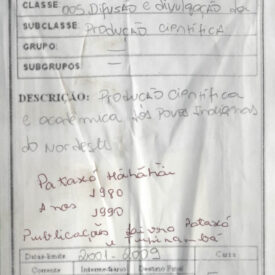 CLASSE: 005. Difusão e divulgação da
SUBCLASSE: Produção
CIENTÍFICA
GRUPO: —
SUBGRUPOS: —
DESCRIÇÃO: Produção científica
e acadêmica dos Povos Indígenas
do Nordeste
Pataxó Hãhãhãi
Anos 1980
1990
Publicação Pataxó
e Tupinambá
Datas-limite 2001-2009
Corrente Intermediário Destino Final